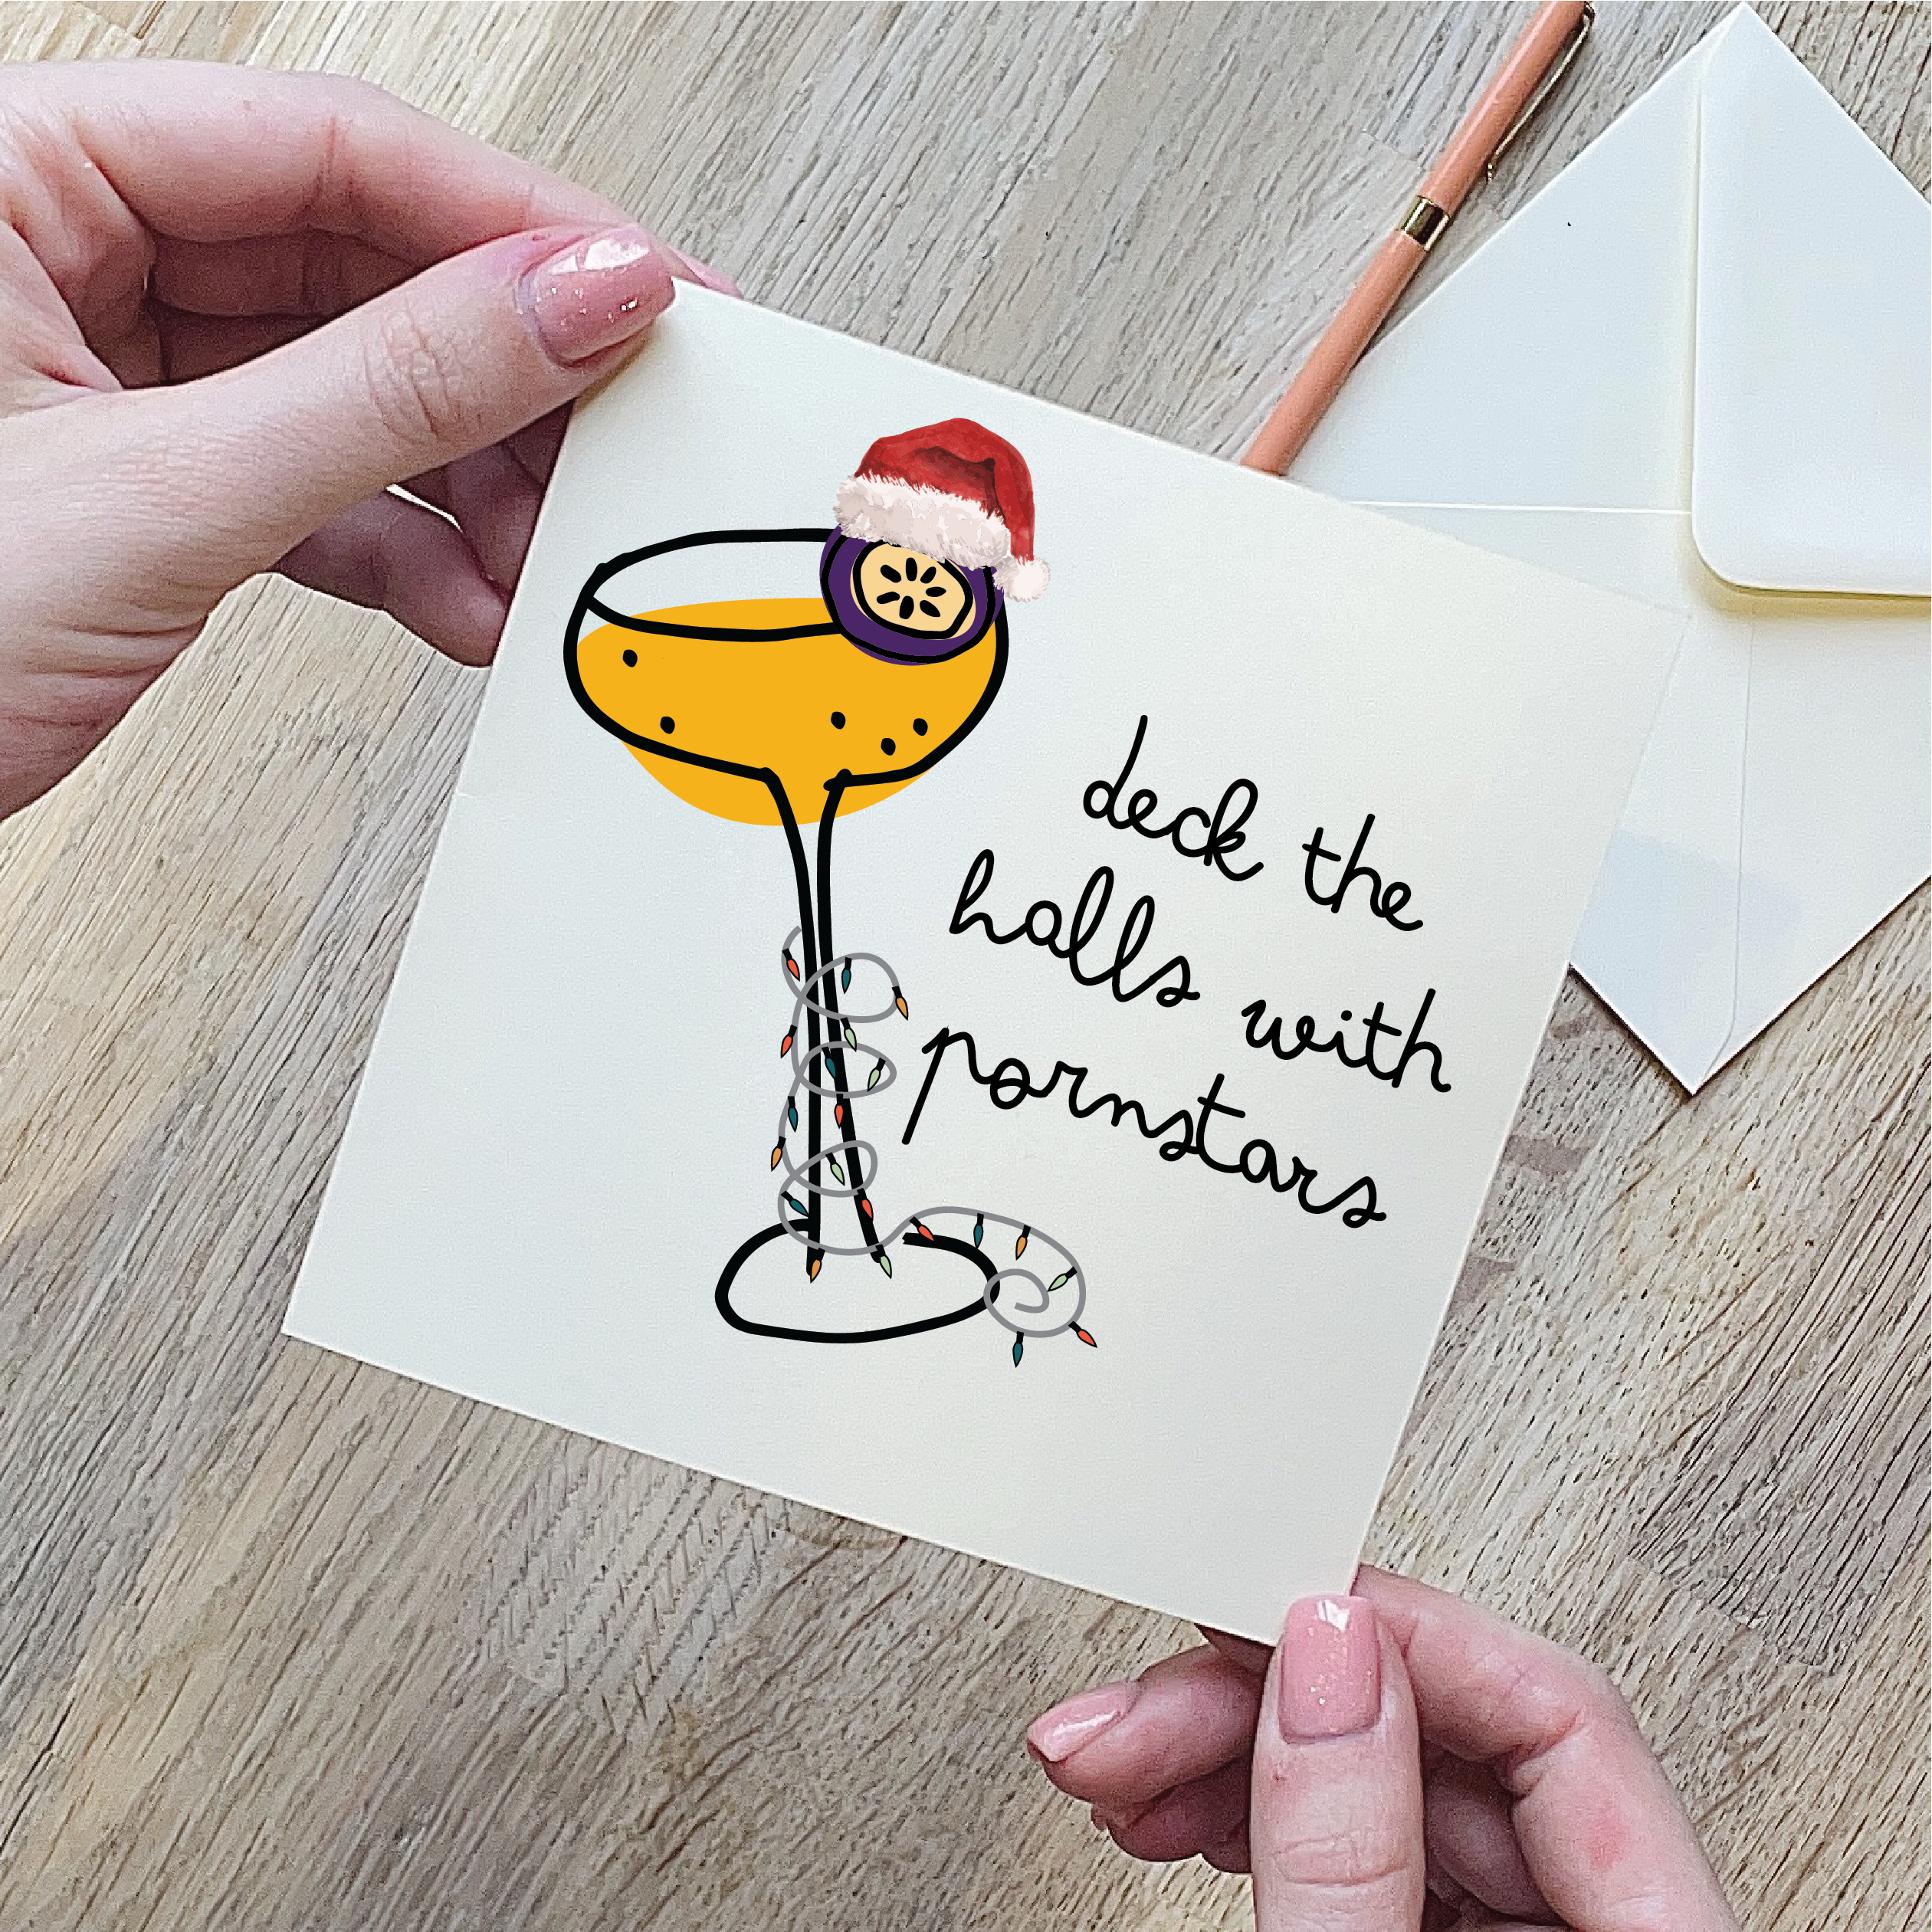 deck the
halls with
pornstars